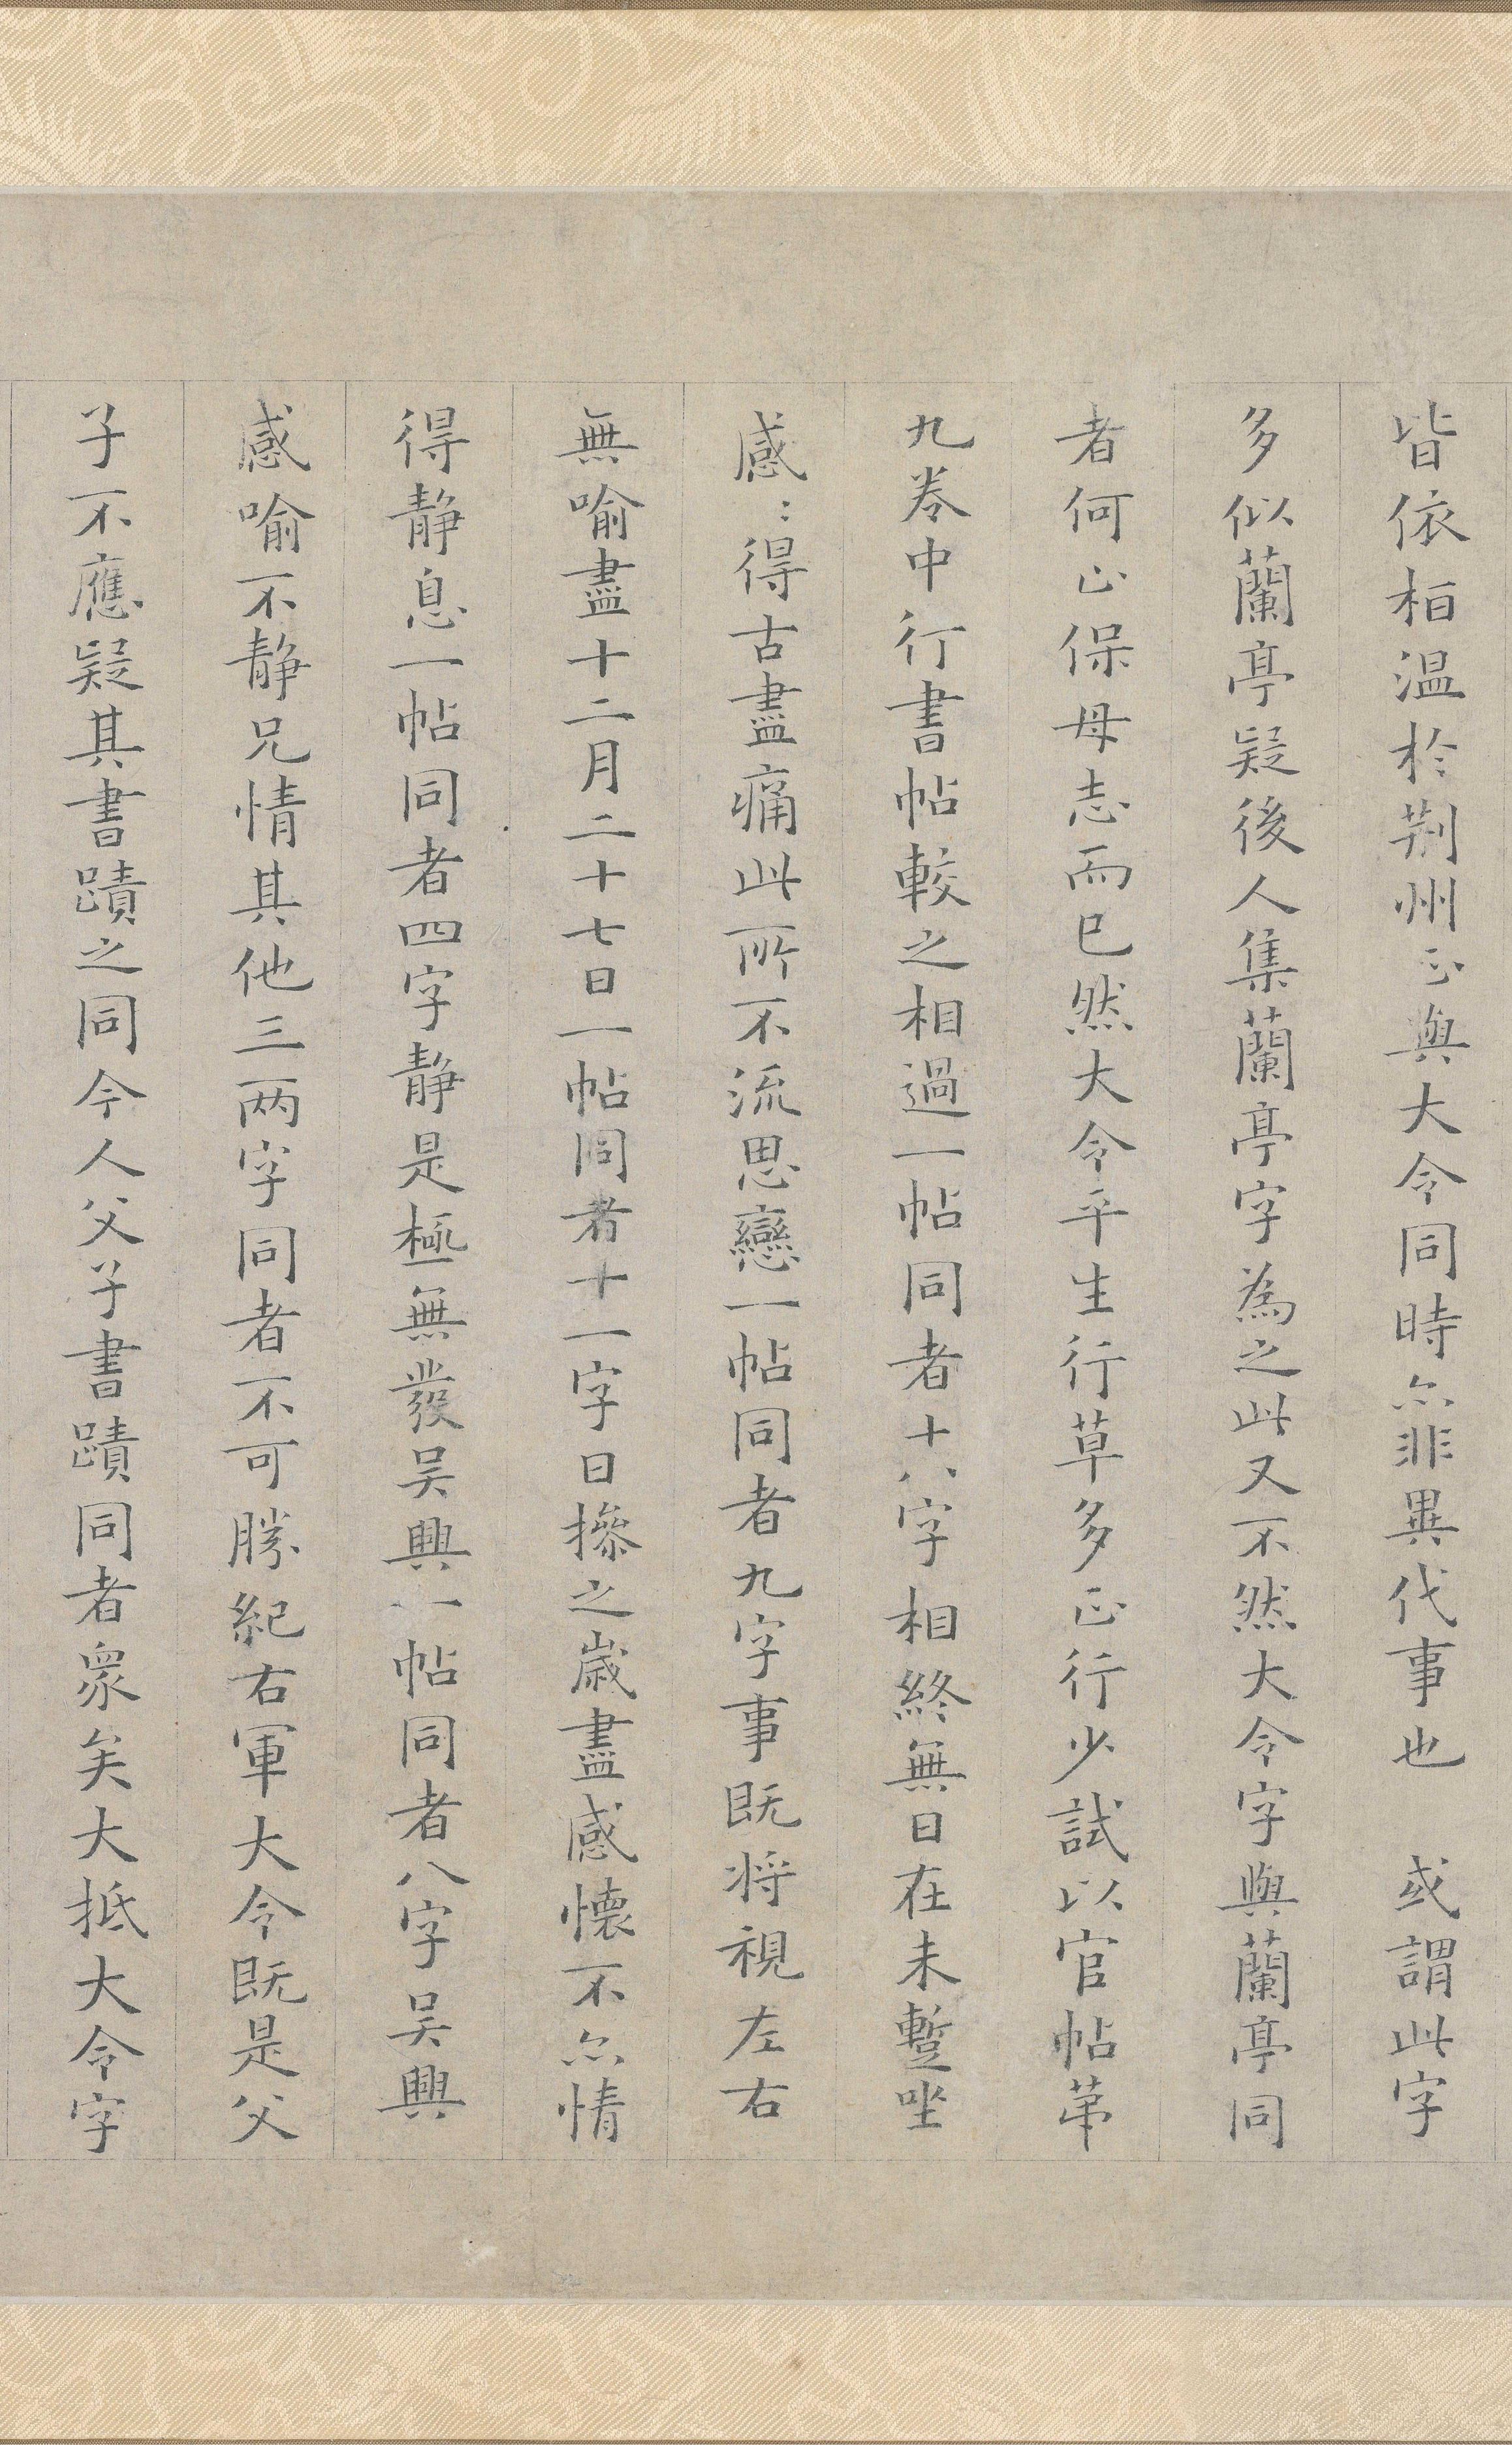 皆依桓温於荆州正與大令同時亦非異代事也　或謂此字
多似蘭亭疑後人集蘭亭字為之此又不然大令字與蘭亭同
者何止保母志而已然大令平生行草多正行少試以官帖苐
九卷中行書帖較之相過一帖同者十八字相終無日在未蹔坐
感〻得古盡痛此所不流思戀一帖同者九字事既将視左右
無喻盡十二月二十七日一帖同者十一字日摻之歲盡感懷不亦情
得静息一帖同者四字静是極無發吴興一帖同者八字吴興
感喻不静兄情其他三两字同者不可勝紀右軍大令既是父
子不應疑其書蹟之同今人父子書蹟同者衆矣大抵大令字